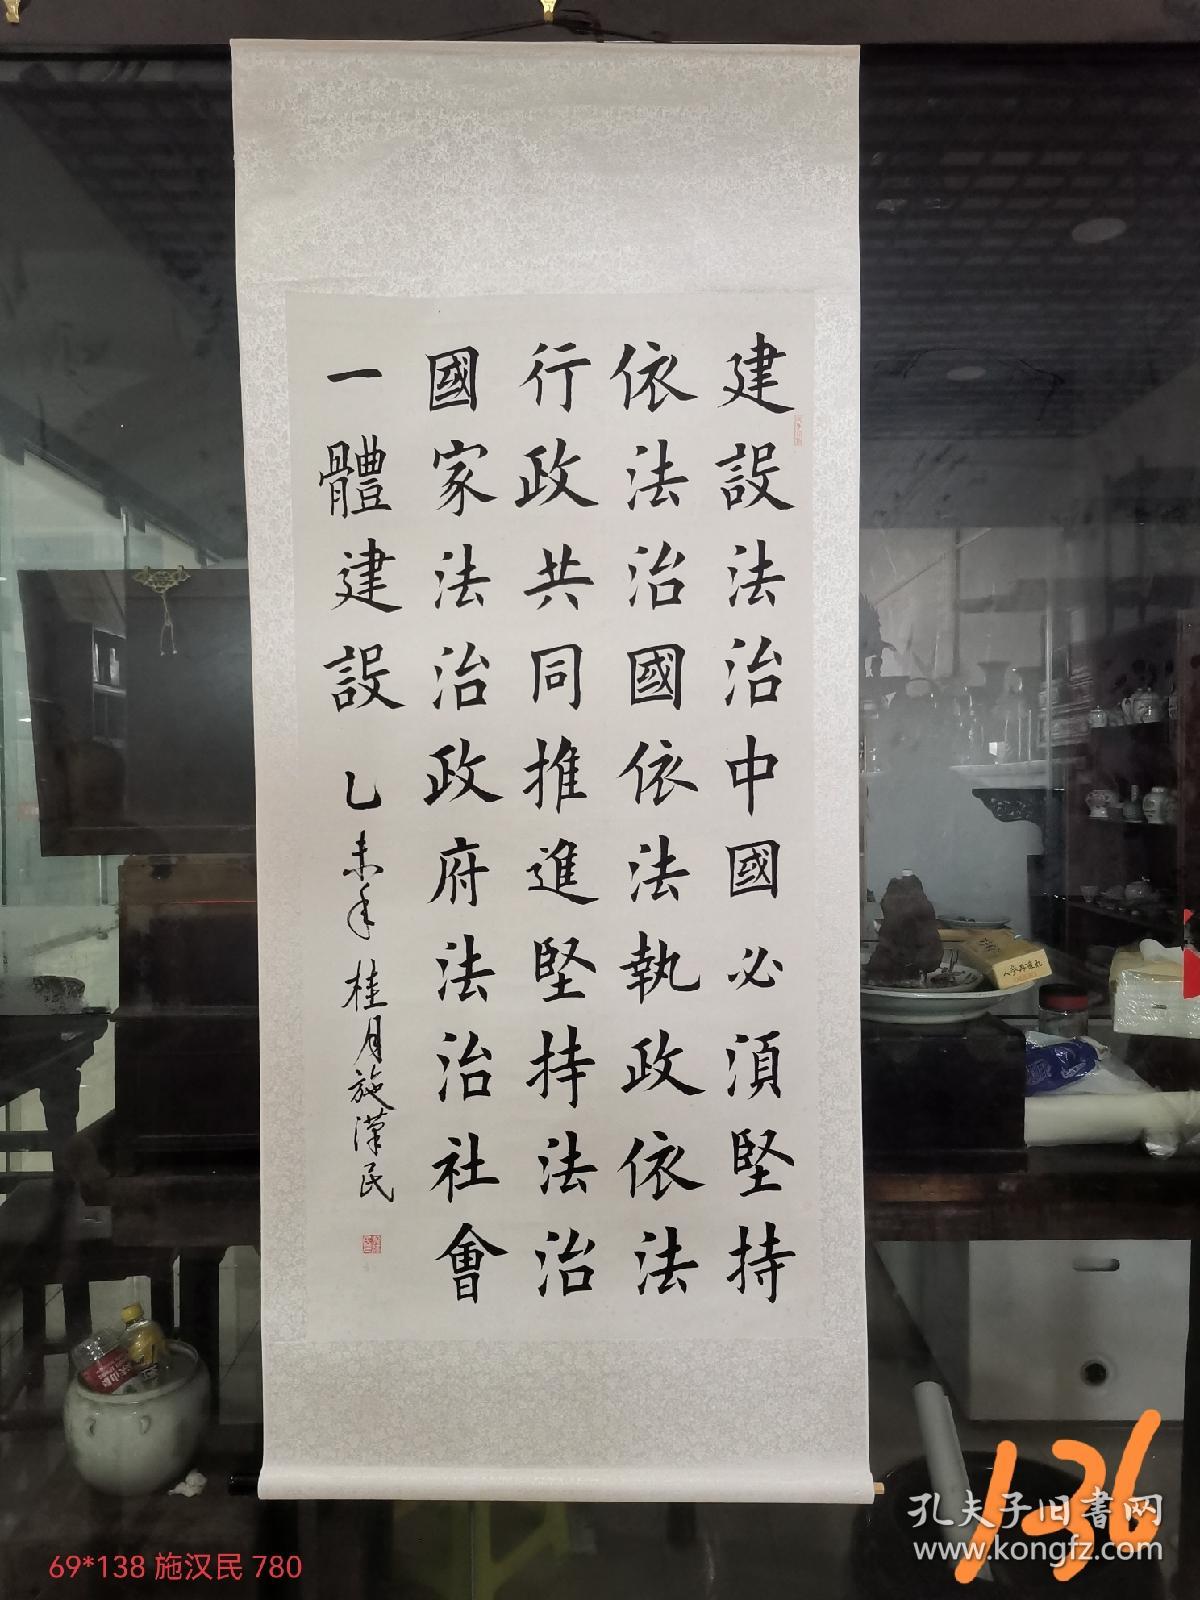 建設法治中國必湏堅持
依法治國依法執政依法
行政共同推進堅持法治
國家法治政府法治社會
一體建設 乙未年桂月施漢民
136
孔夫子旧書网
www.kongfz.com
69*138 施汉民 780